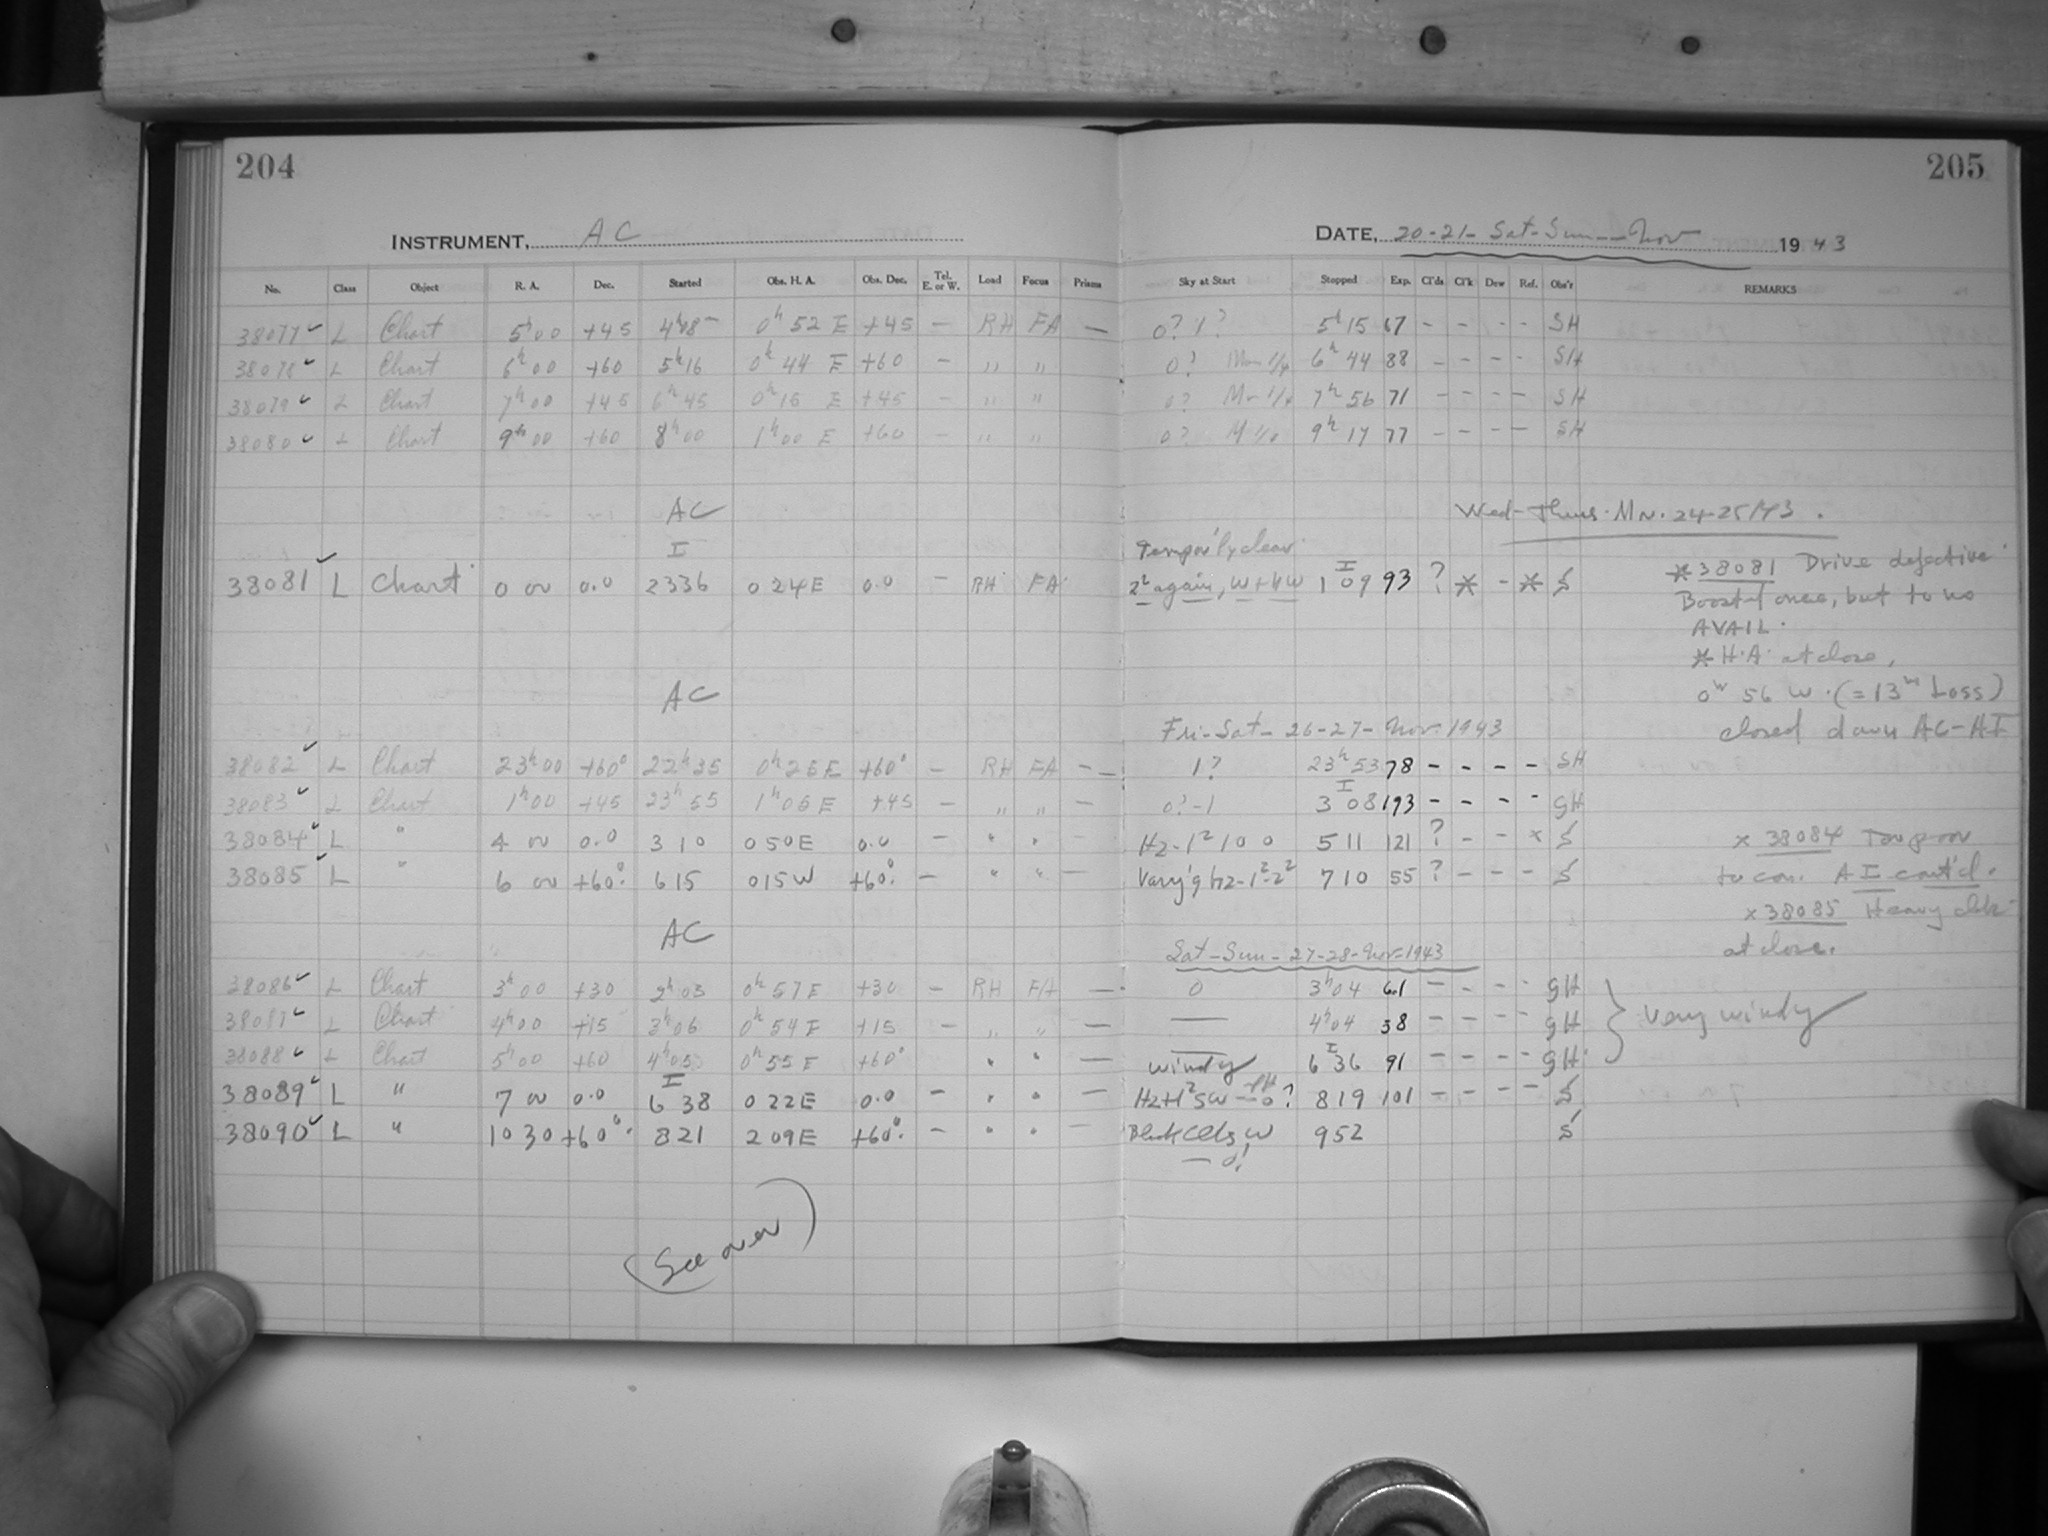 204
205
INSTRUMENT, AC
DATE, 20-21- Sat-Sun--Nov 1943
No. Class Object R. A. Dec. Started Obs. H. A. Obs. Dec. Tel. E. or W. Load Focus Prisms Sky at Start Stopped Exp. Cl'ds Cl'k Dew Ref. Obs'r REMARKS
38077 L Chart 5h00 +45 4h08 0h 52 E +45 - RH FA - 0? 1? 5h 15 67 - - - - SH
38078 L Chart 6h00 +60 5h16 0h 44 E +60 - " " 0? 6h 44 88 - - - - SH
38079 L Chart 7h00 +45 6h45 0h15 E +45 - " " 0? 7h 56 71 - - - - SH
38080 L Chart 9h00 +60 8h00 1h00 E +60 - " " 0? 9h 17 77 - - - - SH
AC
Wed-Thurs. Nv. 24-25/43.
Tempor'ly clear
38081 L Chart 0 00 0.0 2336 0 24E 0.0 - RH FA 2² again, W+NW 1 09 93 ? * - * S
* 38081 Drive defective
Boost-d once, but to no
AVAIL.
* H.A. at close,
0h 56 W. (=13m Loss)
closed down AC-AI
AC
Fri-Sat- 26-27- Nov-1943
38082 L Chart 23h00 +60° 22h35 0h25E +60° - RH FA - - 1? 23h53 78 - - - - SH
38083 L Chart 1h00 +45 23h55 1h05E +45 - " " - 0?-1 3 08 193 - - - - gH
38084 L " 4 00 0.0 3 10 0 50E 0.0 - " " - Hz-1² 5 11 121 ? - - x S
38085 L " 6 00 +60° 615 015W +60° - " " - Vary'g hz-1²-2² 710 55 ? - - - S
x 38084
AI cont'd.
x 38085 Heavy
at close.
AC
Sat-Sun-27-28-Nov-1943
38086 L Chart 3h00 +30 2h03 0h57E +30 - RH FA - 0 3h04 61 - - - - gH
38087 L Chart 4h00 +15 3h06 0h54E +15 - " " - 4h04 38 - - - - gH
38088 L Chart 5h00 +60 4h05 0h55E +60° " " - windy 6 36 91 - - - - gH
Very windy
38089 L " 7 00 0.0 6 38 0 22E 0.0 - " " - 819 101 - - - - S
38090 L " 10 30 +60° 821 2 09E +60° - " " - Clds W 952 S
(See over)